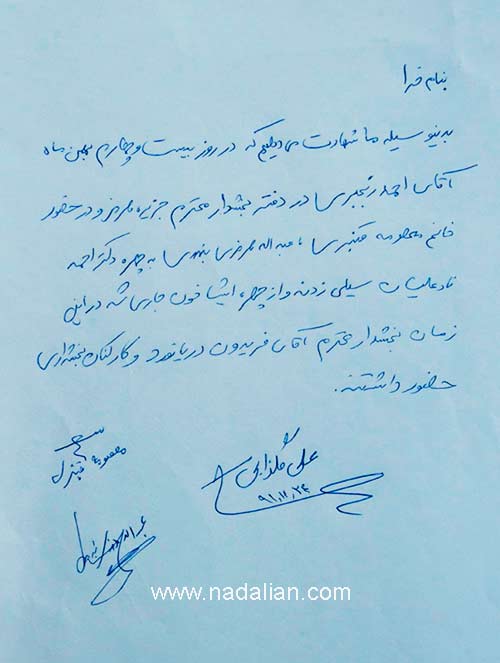 بنام خدا
بدینوسیله ما شهادت می دهیم که در روز بیست و چهارم بهمن ماه
آقای احمد رنجبری در دفتر بخشدار محترم جزیره هرمز و در حضور
خانم معصومه قنبری، عبداله هرمزی بندری به چهره دکتر احمد
نادعلیان سیلی زدند و از چهره ایشان خون جاری شد در این
زمان بخشدار محترم آقای فریدون دریانورد و کارکنان بخشداری
حضور داشتند.
معصومه قنبری
علی
۹۱،۱۱،۲۴
www.nadalian.com